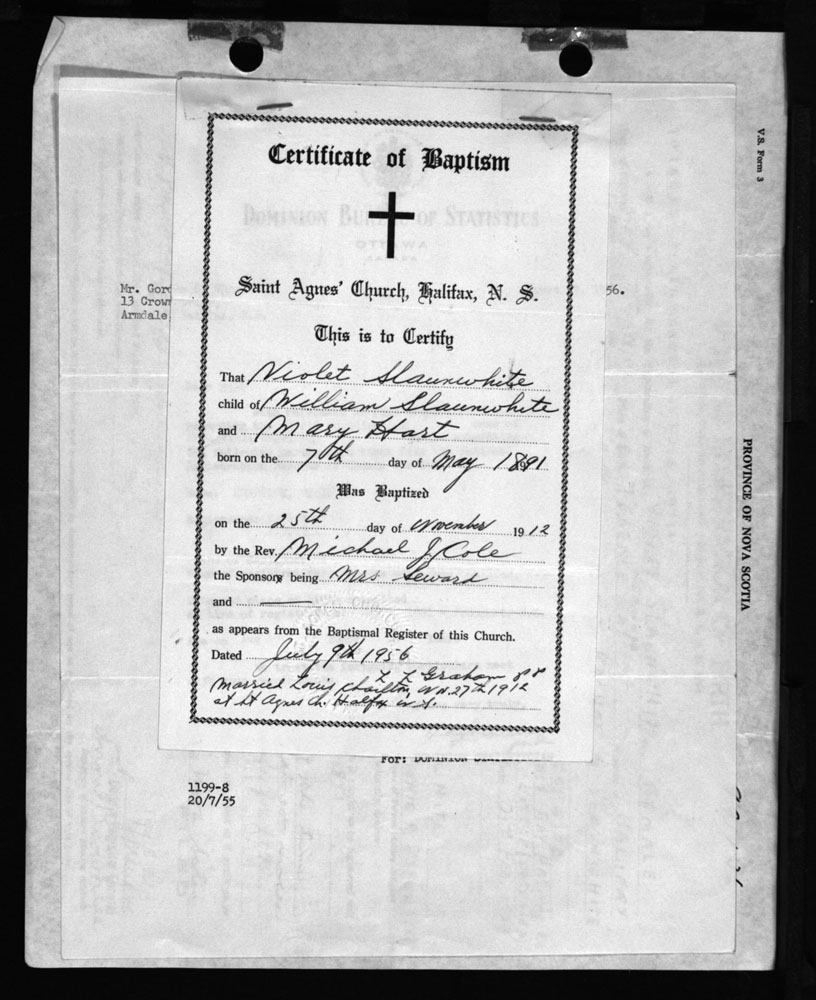 Certificate of Baptism
DOMINION BUREAU OF STATISTICS
OTTAWA
CANADA
Mr. Gor
13 Crow
Armdale
56.
Saint Agnes' Church, Halifax, N. S.
This is to Certify
That Violet Slaunwhite
child of William Slaunwhite
and Mary Hart
born on the 7th day of May 1891
Was Baptized
on the 25th day of November 1912
by the Rev. Michael J. Cole
the Sponsors being Mrs Seward
and
as appears from the Baptismal Register of this Church.
Dated July 9th 1956
Graham P P
Married Louis Nov 27th 1912
at St Agnes Ch. Halifax N.S.
For: DOMINION
1199-8
20/7/55
V.S. Form 3
PROVINCE OF NOVA SCOTIA